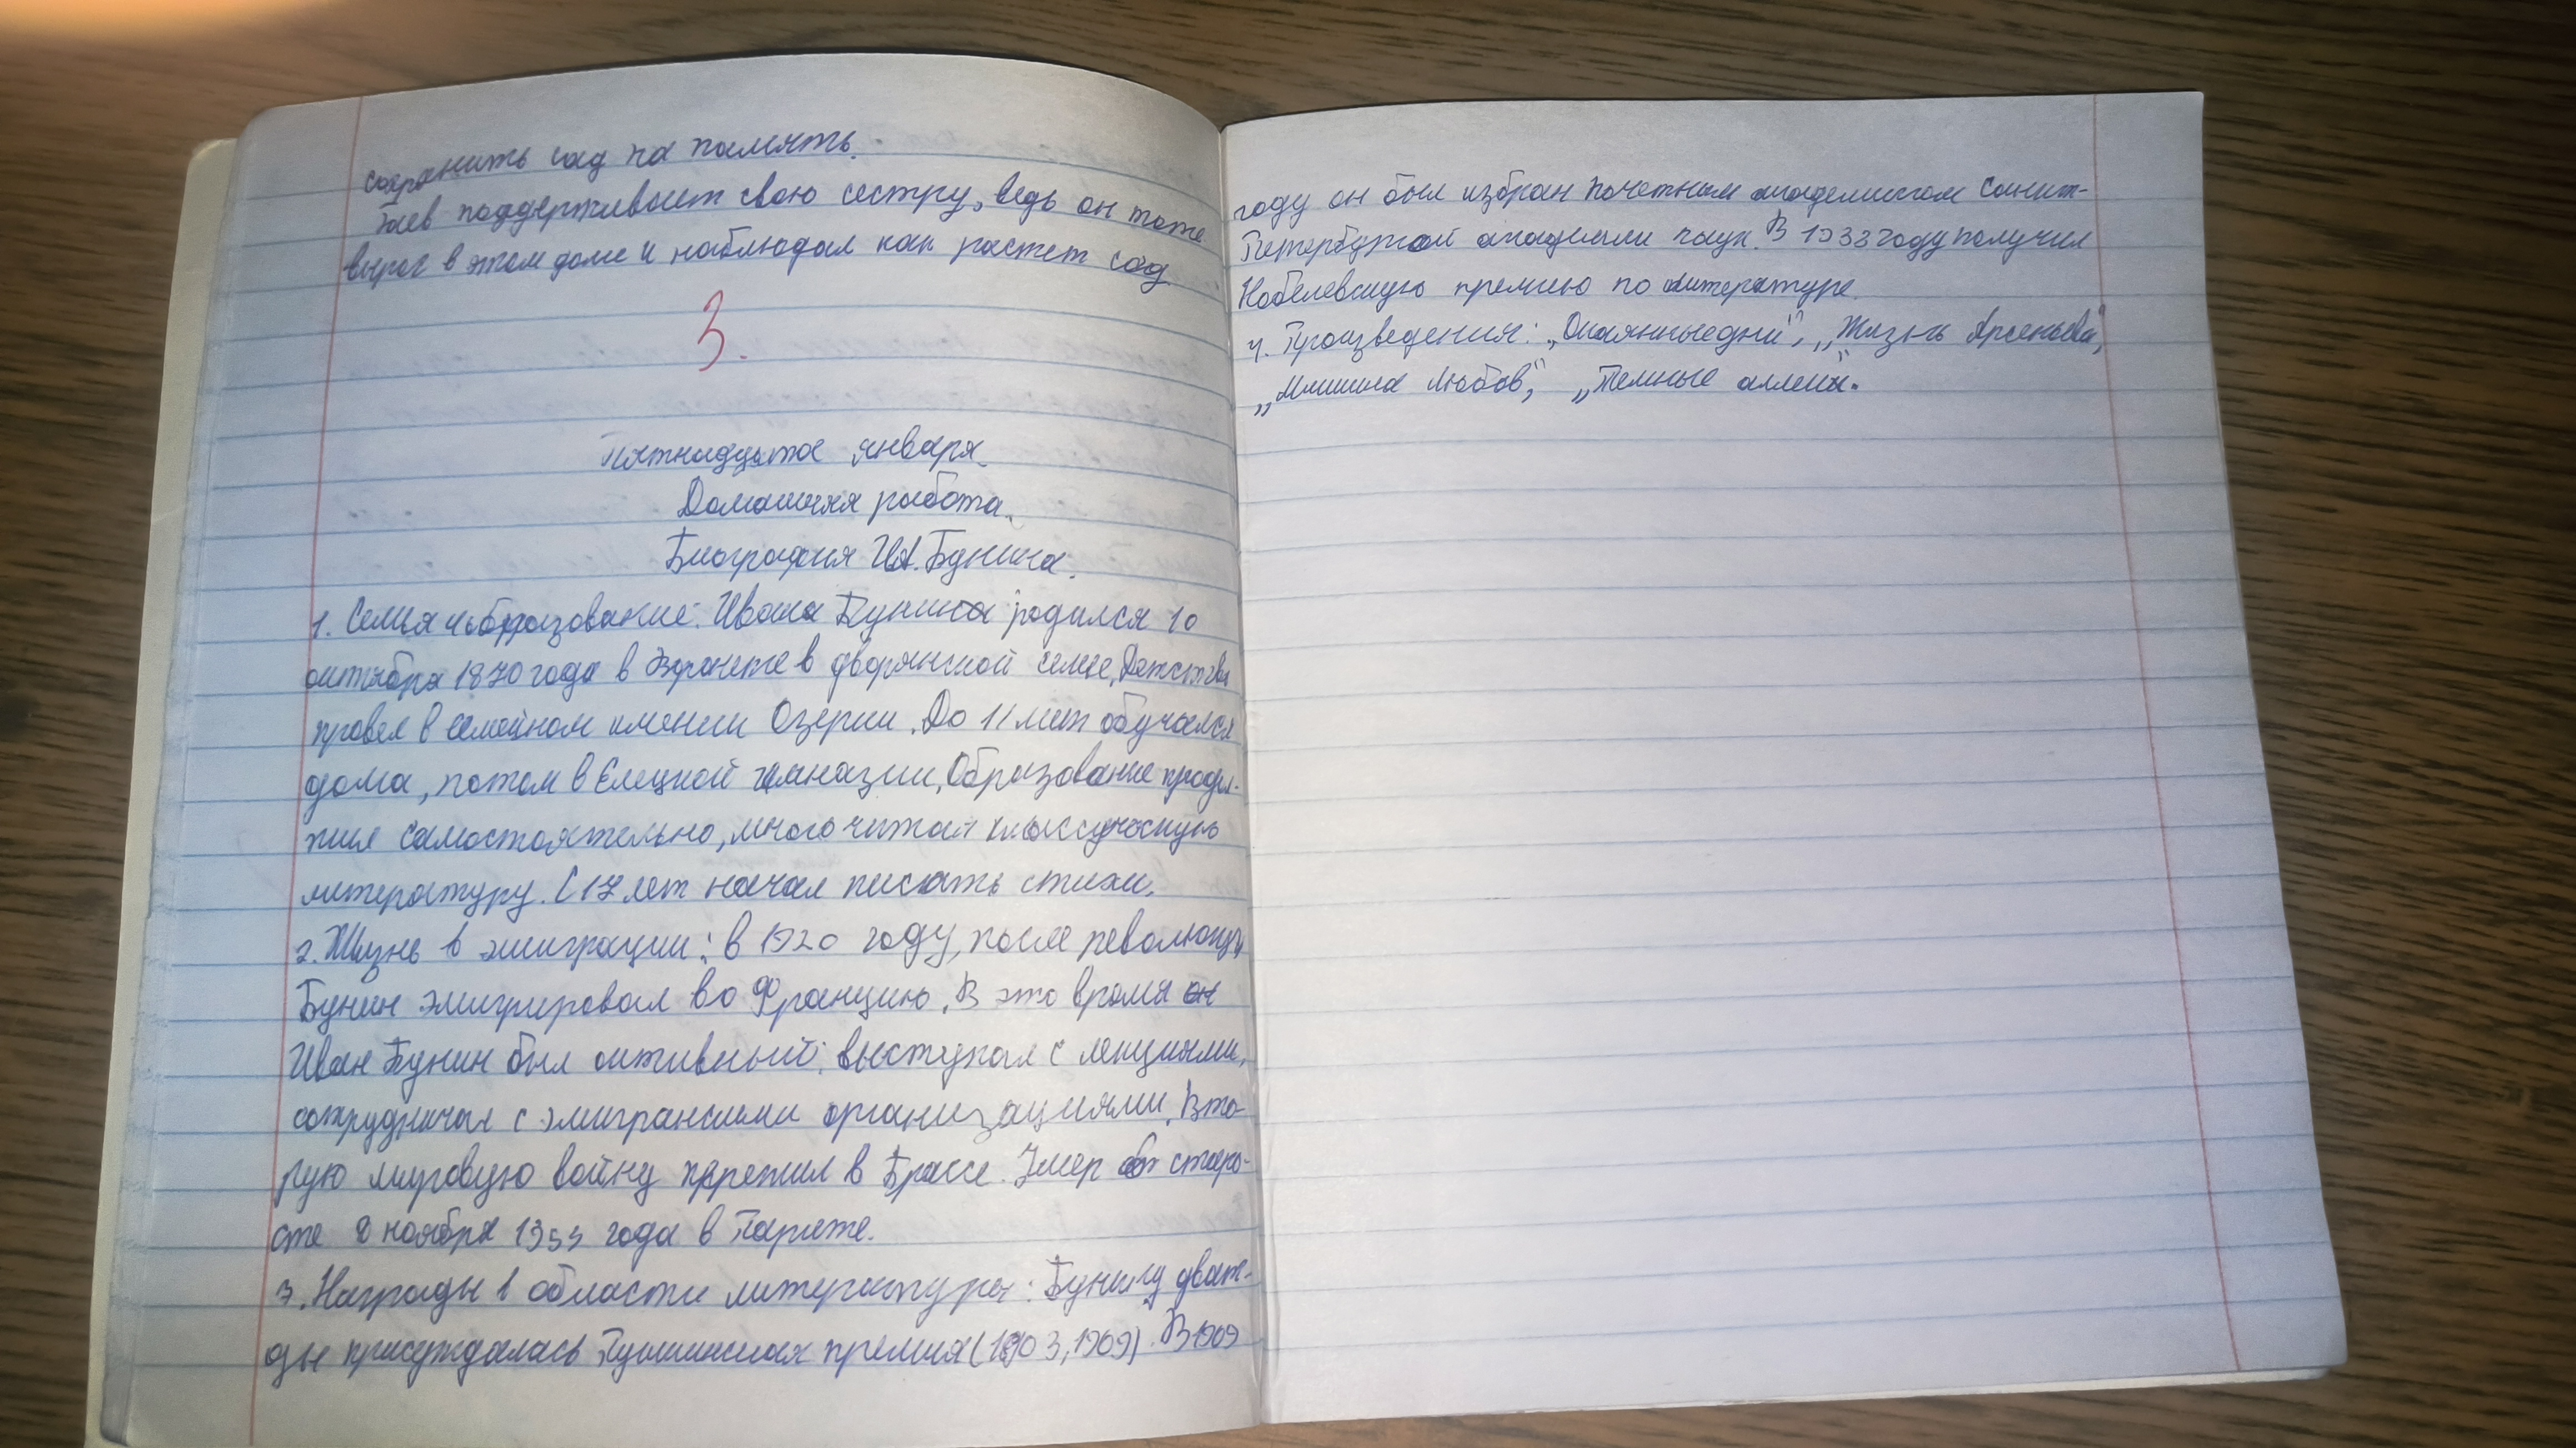 сохранить сад на память.
Гаев поддерживает свою сестру, ведь он тоже
вырос в этом доме и наблюдал как растет сад
3.
Пятнадцатое января.
Домашняя работа.
Биография И.А. Бунина.
1. Семья и образование: Ивана Бунина родился 10
октября 1870 года в Воронеже в дворянской семье. Детство
провел в семейном имении Озерки. До 11 лет обучался
дома, потом в Елецкой гимназии. Образование продол-
жил самостоятельно, много читал классическую
литературу. С 17 лет начал писать стихи.
2. Жизнь в эмиграции: в 1920 году, после революции
Бунин эмигрировал во Францию. В это время он
Иван Бунин был активный: выступал с лекциями,
сотрудничал с эмигранскими организациями. Вто-
рую мировую войну пережил в Грассе. Умер от старо-
сте 8 ноября 1953 года в Париже.
3. Награды в области литературы: Бунину дваж-
ды присуждалась Пушкинская премия (1903, 1909). В 1909
году он был избран почетным академиком Санкт-
Петербугской академии наук. В 1933 году получил
Нобелевскую премию по литературе.
4. Произведения: „Окаянные дни", „Жизнь Арсеньева",
„Митина любовь", „Темные аллеи".